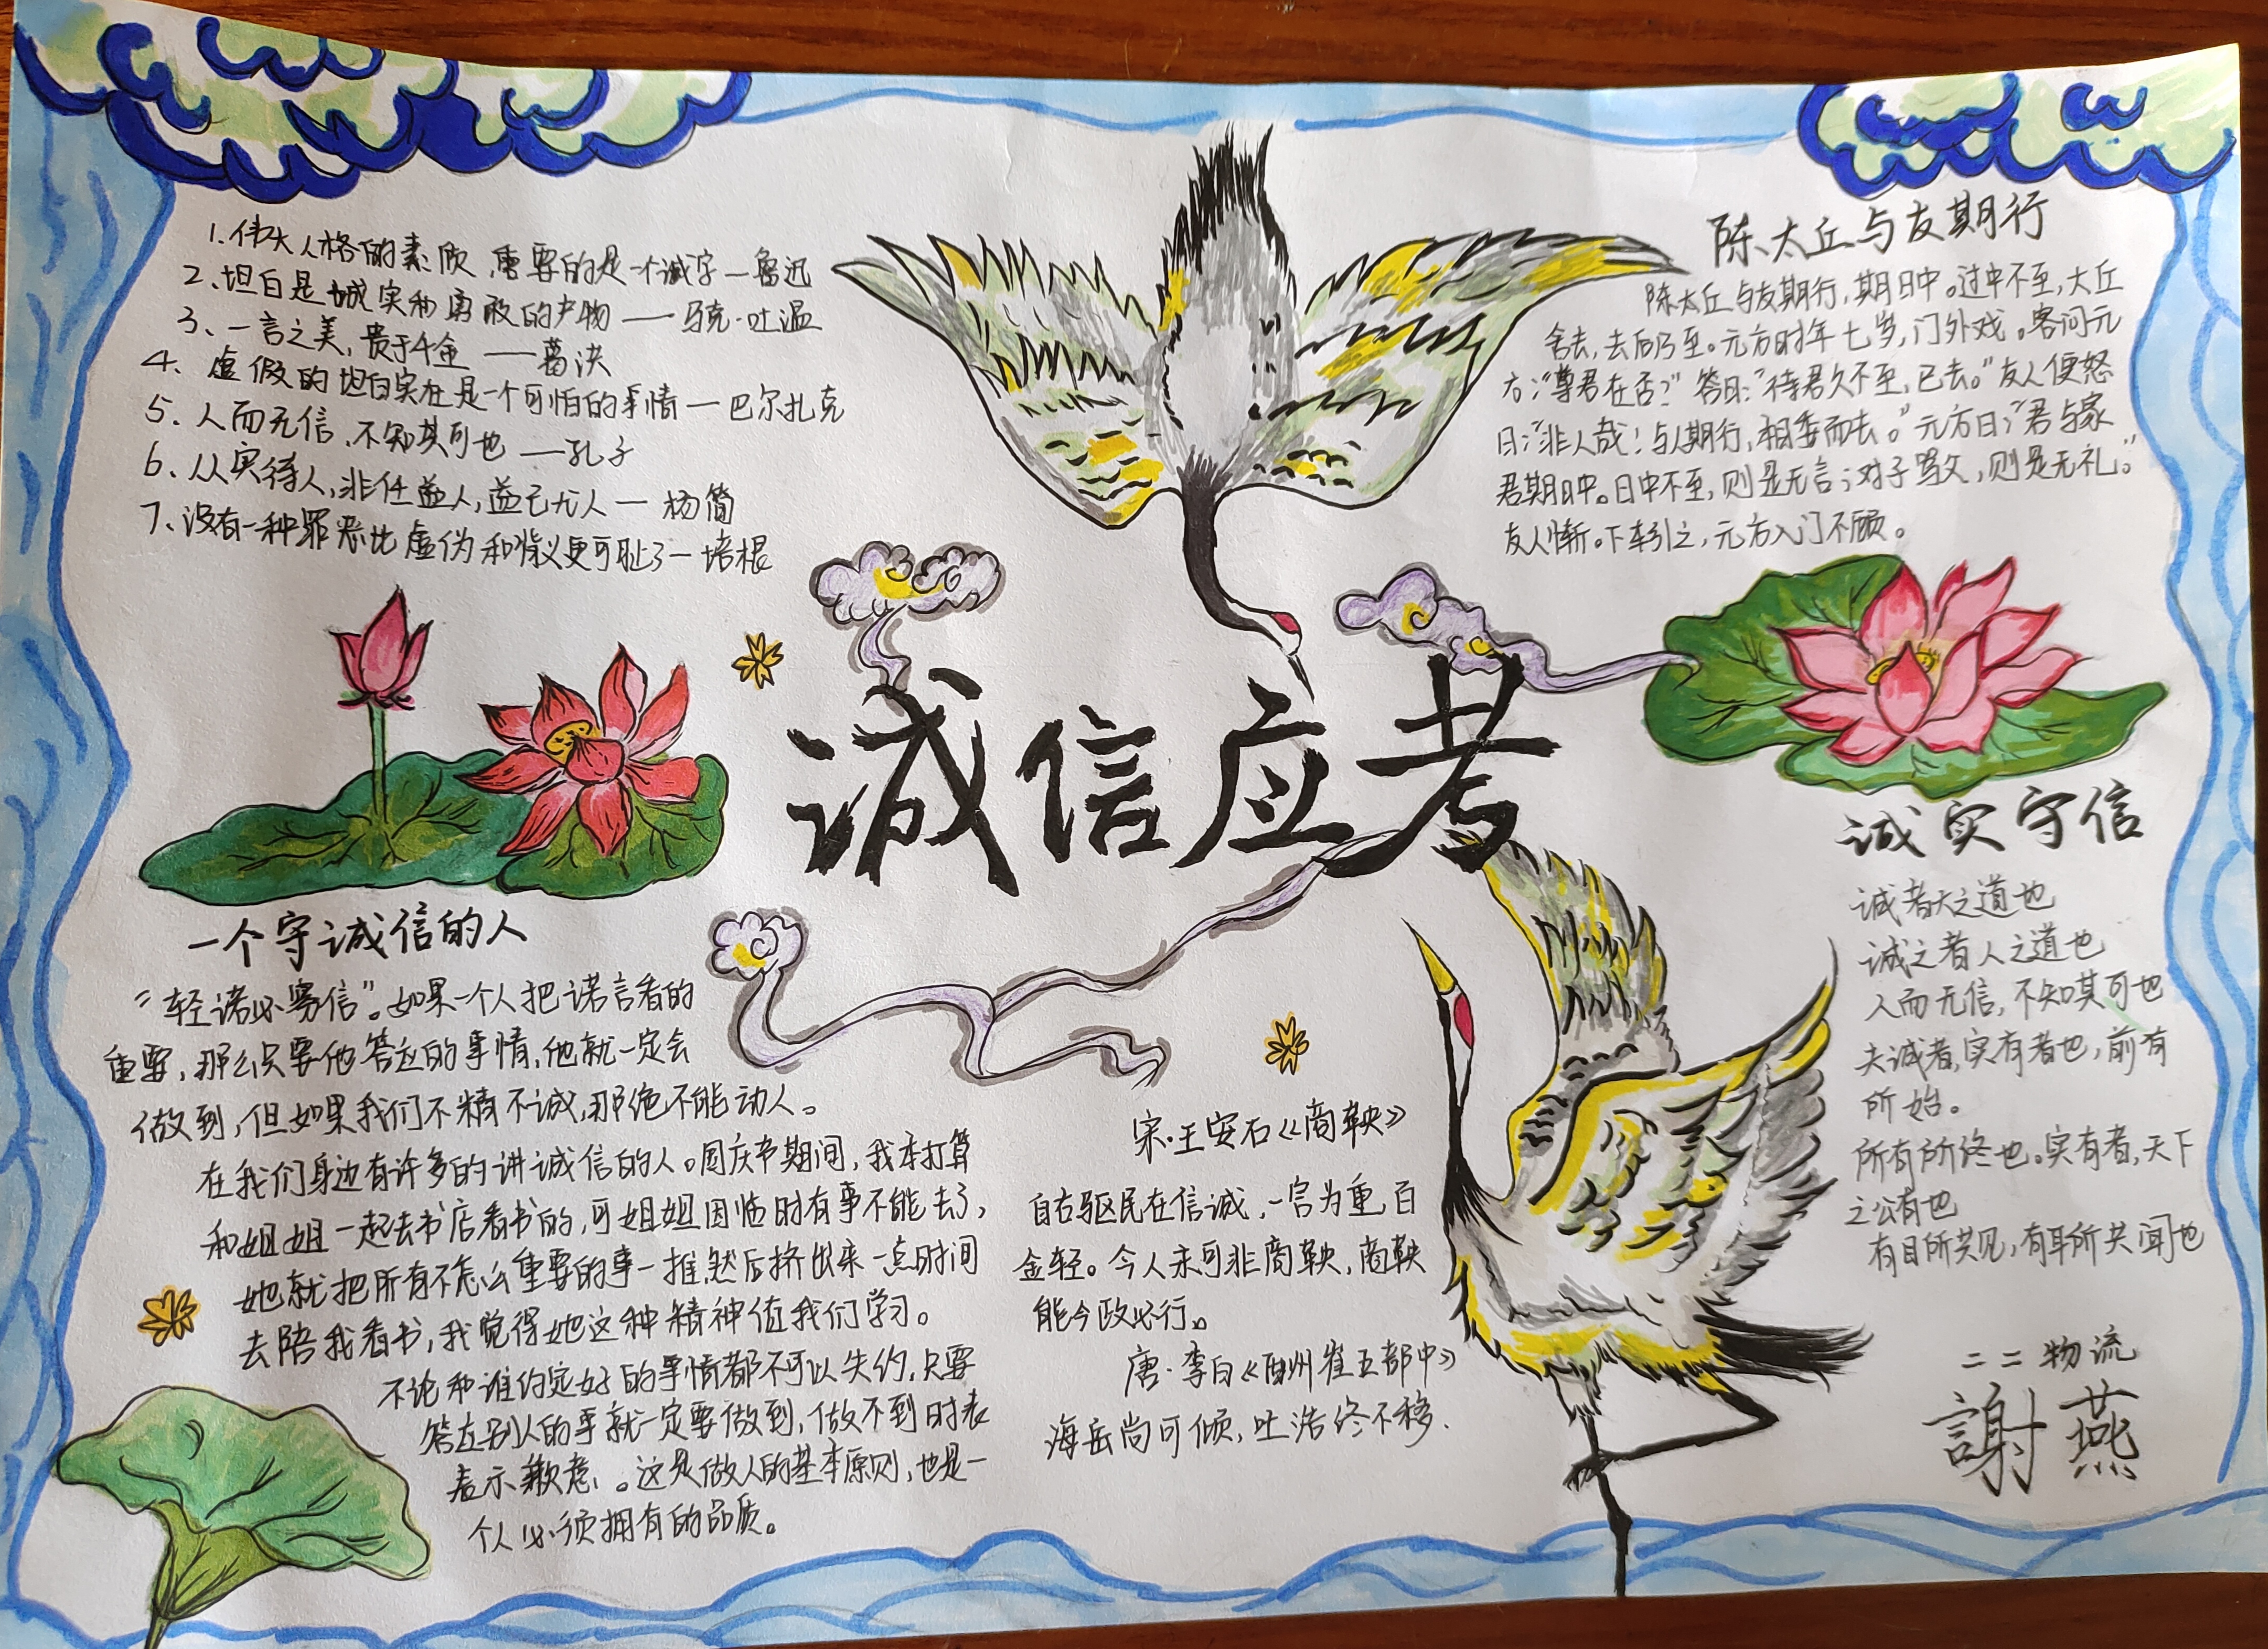 1.伟大人格的素质,重要的是一个诚字—鲁迅
2、坦白是诚实和勇敢的产物——马克·吐温
3、一言之美,贵于千金——葛洪
4、虚假的坦白实在是一个可怕的事情—巴尔扎克
5、人而无信、不知其可也—孔子
6、从实待人,非任益人,益己尤人—杨简
7、没有一种罪恶比虚伪和背义更可耻了—培根
陈太丘与友期行
陈太丘与友期行,期日中。过中不至,大丘
舍去,去后乃至。元方时年七岁,门外戏。客问元
方:“尊君在否?”答曰:“待君久不至,已去。”友人便怒
曰:“非人哉!与人期行,相委而去。”元方曰:“君与家
君期日中。日中不至,则是无言;对子骂父,则是无礼。”
友人惭。下车引之,元方入门不顾。
诚信应考
一个守诚信的人
“轻诺必寡信”。如果一个人把诺言看的
重要,那么只要他答应的事情,他就一定会
做到,但如果我们不精不诚,那绝不能动人。
在我们身边有许多的讲诚信的人。国庆节期间,我本打算
和姐姐一起去书店看书的,可姐姐因临时有事不能去了,
她就把所有不怎么重要的事一推,然后挤出来一点时间
去陪我看书,我觉得她这种精神值我们学习。
不论和谁约定好的事情都不可以失约,只要
答应别人的事就一定要做到,做不到时表
表示歉意、。这是做人的基本原则,也是一
个人必须拥有的品质。
宋·王安石《商鞅》
自古驱民在信诚,一言为重百
金轻。今人未可非商鞅,商鞅
能今政必行。
唐·李白《酬崔五郎中》
海岳尚可倾,吐浩终不移.
诚实守信
诚者大之道也
诚之者人之道也
人而无信,不知其可也
夫诚者,实有者也,前有
所始。
所有所终也。实有者,天下
之公有也
有目所共见,有耳所共闻也
二二物流
謝燕